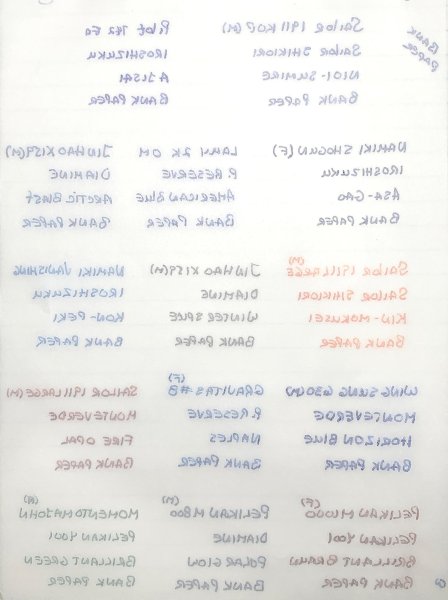 BANK
PAPER
SAILOR 1911 KOP (M)
SAILOR SHIKIORI
NIOI-SUMIRE
BANK PAPER
PILOT 742 FA
IROSHIZUKU
AJISAI
BANK PAPER
NAMIKI SHOGUN (F)
IROSHIZUKU
ASA-GAO
BANK PAPER
LAMY 2K OM
P. RESERVE
AMERICAN BLUE
BANK PAPER
JINHAO X159 (M)
DIAMINE
ARCTIC BLAST
BANK PAPER
(M)
SAILOR 1911 LARGE
SAILOR SHIKIORI
KIN-MOKUSEI
BANK PAPER
JINHAO X159 (M)
DIAMINE
WINTER
BANK PAPER
NAMIKI VANISHING
IROSHIZUKU
KON-PEKI
BANK PAPER
WING SUNG 630 (M)
MONTEVERDE
HORIZON BLUE
BANK PAPER
(F)
GRAVITAS #8
P. RESERVE
NAPLES
BANK PAPER
SAILOR 1911 LARGE (M)
MONTEVERDE
FIRE OPAL
BANK PAPER
(F)
PELIKAN M1000
PELIKAN 4001
BRILLIANT BROWN
BANK PAPER
(M)
PELIKAN M800
DIAMINE
POLAR GLOW
BANK PAPER
(M)
MOMENTO MAJOHN
PELIKAN 4001
BRILLIANT GREEN
BANK PAPER